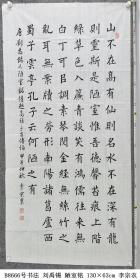 山不在高有仙則名水不在深有龍
則靈斯是陋室惟吾德馨苔痕上階
綠草色入簾青談笑有鴻儒往來無
白丁可以調素琴閱金經無絲竹之
亂耳無案牘之勞形南陽諸葛廬西
蜀子雲亭孔子云何陋之有
唐劉禹錫 陋室銘
B8666号 书法 刘禹锡 陋室铭 130×63cm 李宗农